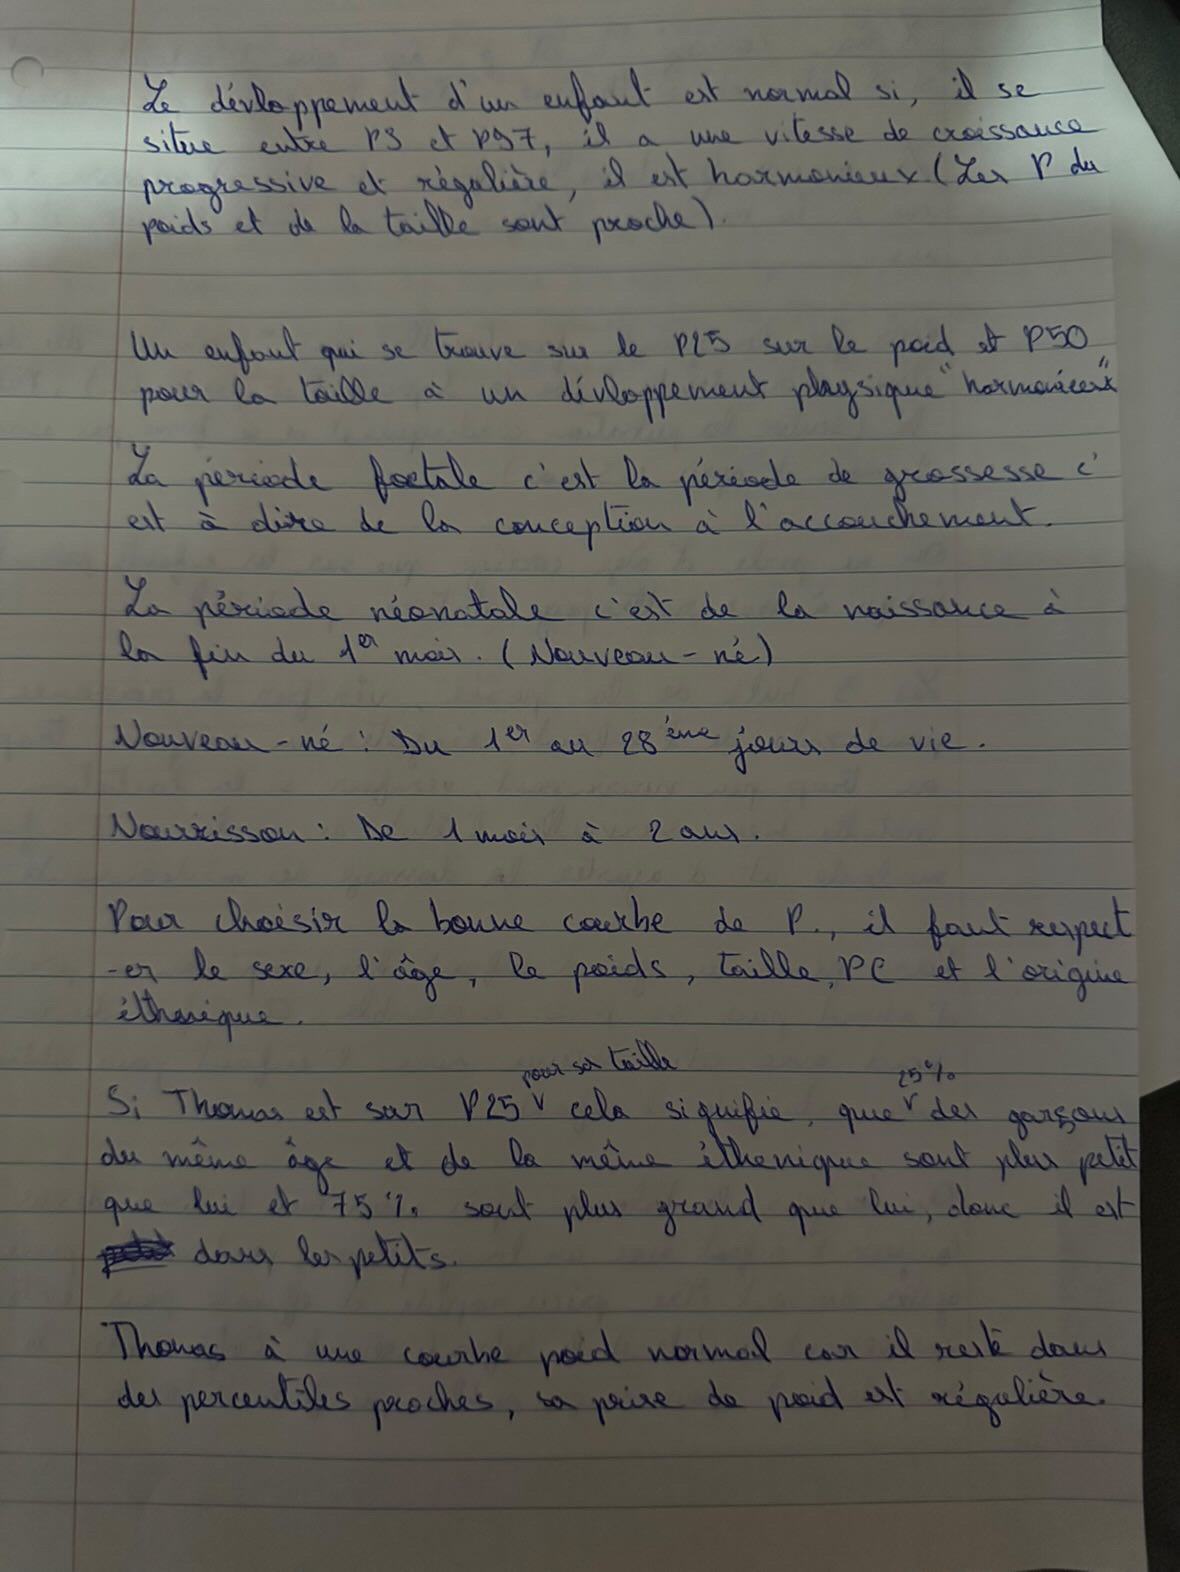 Le dévloppement d'un enfant est normal si, il se
situe entre P3 et P97, il a une vitesse de croissance
progressive et régulière, il est harmonieux (Les P du
poids et de la taille sont proche).
Un enfant qui se trouve sur le P25 sur le poid et P50
pour la taille à un dévloppement physique "harmonieux"
La période foetale c'est la période de grossesse c'
est à dire de la conception à l'accouchement.
La période néonatale c'est de la naissance à
la fin du 1er mois. (Nouveau-né)
Nouveau-né : Du 1er au 28ème jours de vie.
Nourrisson : De 1 mois à 2 ans.
Pour choisir la bonne courbe de P., il faut respect
-er le sexe, l'âge, le poids, taille, PC et l'origine
éthenique.
Si Thomas est sur P25 pour sa taille cela signifie que 25% des garçons
du même âge et de la même éthenique sont plus petit
que lui et 75% sont plus grand que lui, donc il est
dans les petits.
Thomas à une courbe poid normal car il reste dans
des percentiles proches, sa prise de poid est régulière.